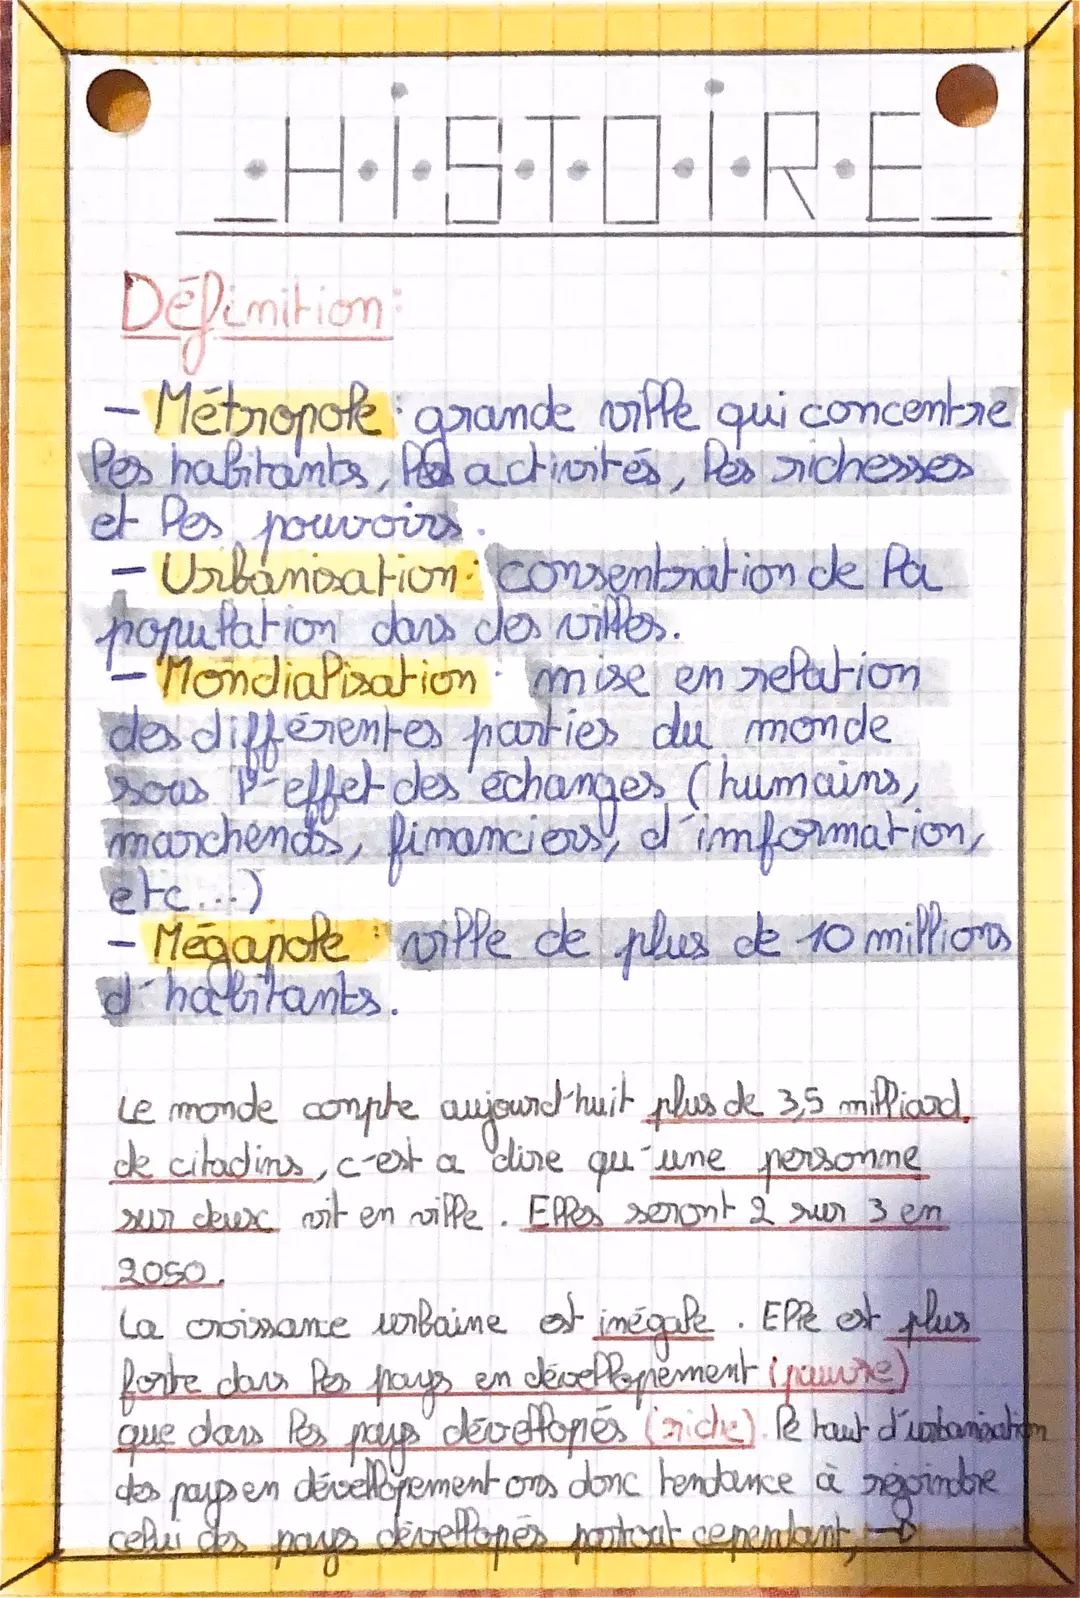 HISTOIRE
Définition:
- Métropole : grande ville qui concentre
les habitants, les activités, les richesses
et les pouvoirs.
- Urbanisation : consentration de la
population dans des villes.
- Mondialisation : mise en relation
des différentes parties du monde
sous l'effet des échanges (humains,
marchends, financiers, d'information,
etc...)
- Mégapole : ville de plus de 10 millions
d'habitants.
Le monde compte aujourd'huit plus de 3,5 milliard
de citadins, c'est a dire qu'une personne
sur deux vit en ville. Elles seront 2 sur 3 en
2050.
La croissance urbaine est inégale. Elle est plus
forte dans les pays en dévellopement (pauvre)
que dans les pays dévellopés (riche). Le taut d'urbanisation
des pays en dévellopement ons donc tendance à rejoindre
celui des pays dévellopés partout cependant, →